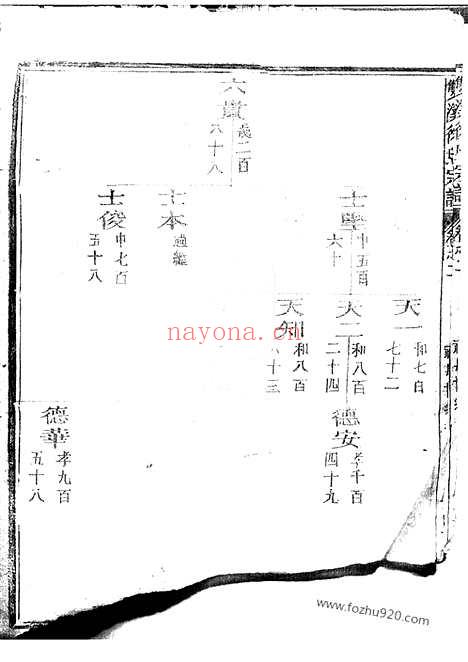 六貴
歲二百
六十八
士學
申五百
六十
士本
過繼
士俊
申七百
五十八
天一
和七百
七十二
天二
和八百
二十四
天知
和八百
六十三
德安
孝千百
四十九
德華
孝九百
五十八
nayona.cn
www.fozhu920.com